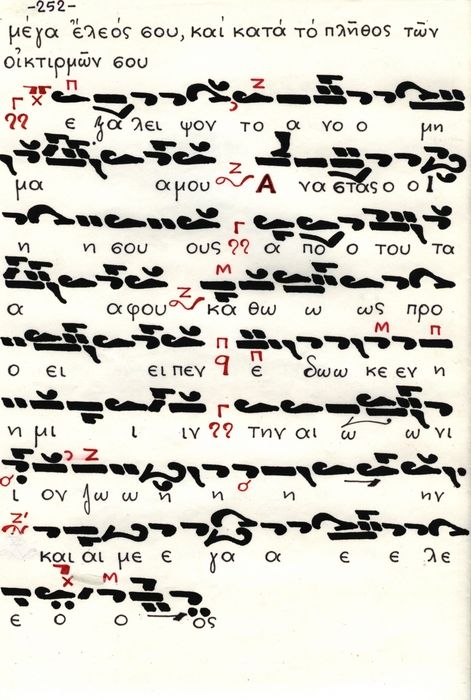 -252-
μέγα ἔλεός σου, καί κατά τό πλῆθος τῶν
οἰκτιρμῶν σου
ε ξα λει ψον το α νο ο μη
μα α μου Α να στας ο ο Ι
η η σου ους α πο ο του τα
α α φου κα θω ω ως προ
ο ει ει πεν ε δω ω κε εν η
η μι ι ιν την αι ω ω νι
ι ον ζω ω η η η ην
και αι με ε γα α ε ε λε
ε ο ο ος